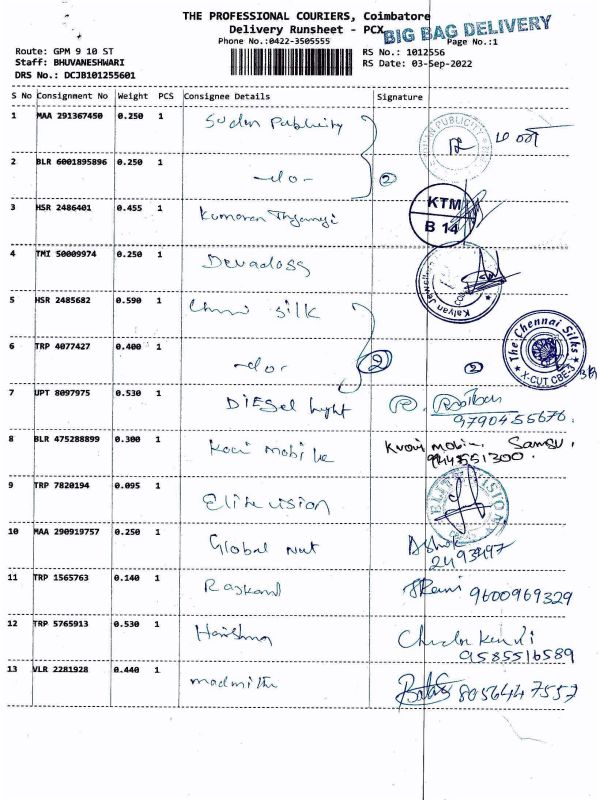 THE PROFESSIONAL COURIERS, Coimbatore
Delivery Runsheet - PCX
BIG BAG DELIVERY
Phone No.:0422-3505555
Page No.:1
Route: GPM 9 10 ST
RS No.: 1012556
Staff: BHUVANESHWARI
RS Date: 03-Sep-2022
DRS No.: DCJB101255601
S No Consignment No Weight PCS Consignee Details Signature
1 MAA 291367450 0.250 1 Sudan Publicity
2 BLR 6001895896 0.250 1 -do- 2
3 HSR 2486401 0.455 1 Kumaran KTM B 14
4 TMI 50009974 0.250 1 Devadoss
Kalyan Jewellers
5 HSR 2485682 0.590 1 silk
The Chennai Silks
X-CUT CBE-3
6 TRP 4077427 0.400 1 -do- 2 2
7 UPT 8097975 0.530 1 Diesel light
9790455676
8 BLR 475288899 0.300 1 Kavi mobile Kavi mobile
9444551300
9 TRP 7820194 0.095 1 Elite vision ELITE VISION
10 MAA 290919757 0.250 1 Global Nut Ashok
2493497
11 TRP 1565763 0.140 1 9600969329
12 TRP 5765913 0.530 1
9585516589
13 VLR 2281928 0.440 1 8056447557